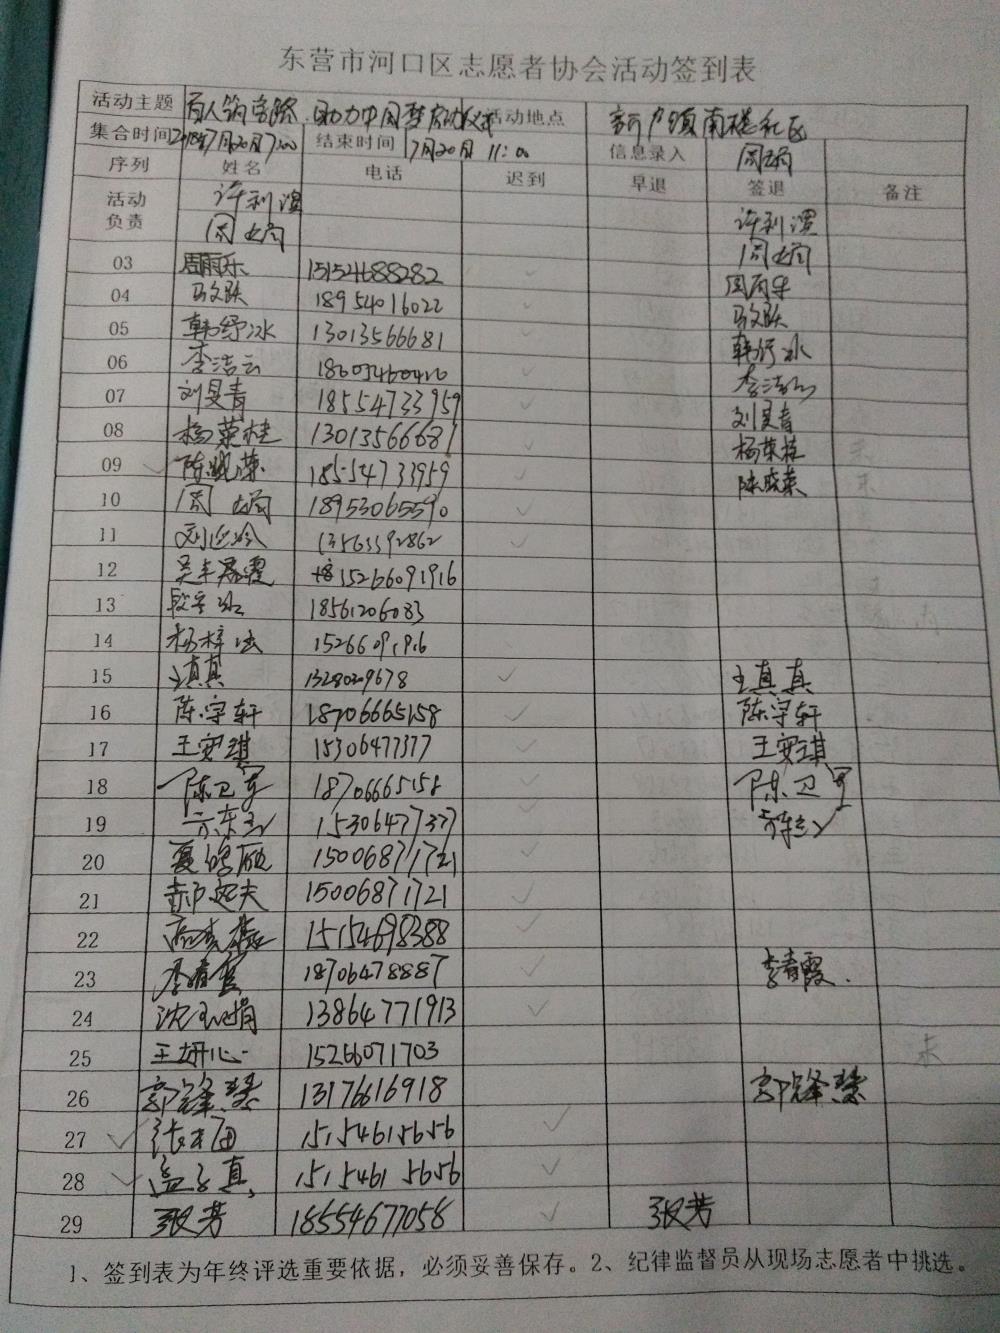 东营市河口区志愿者协会活动签到表
活动主题 百人 助力中国梦启动仪式 活动地点 新户镇南楼社区
集合时间 7月20日7:00 结束时间 7月20日 11:00 信息录入
序列 姓名 电话 迟到 早退 签退 备注
活动
负责
许利 许利
周 周
03 周雨乐 15154688282 周雨乐
04 马文跃 18954016022 马文跃
05 韩纾冰 13013566681 韩纾冰
06 李洁云 李洁云
07 刘旻青 18554733959 刘旻青
08 杨荣桂 13013566681 杨荣桂
09 陈晓荣 18554733959 陈晓荣
10 周 18953065590
11 刘 13563392862
12 15266091916
13 18561206033
14 杨梓 15266091916
15 王真真 13280309678 王真真
16 陈宇轩 18706665158 陈宇轩
17 王安琪 15306477377 王安琪
18 陈卫军 18706665158 陈卫军
19 15306477377
20 夏 15006871721
21 15006871721
22 高 15154698388
23 李青霞 18706478887 李青霞
24 沈 娟 13864771913
25 王妍心 15266071703
26 郭锋慧 13176616918 郭锋慧
27 张 15154615656
28 孟 真 15154615656
29 张芳 18554677058 张芳
1、签到表为年终评选重要依据，必须妥善保存。2、纪律监督员从现场志愿者中挑选。